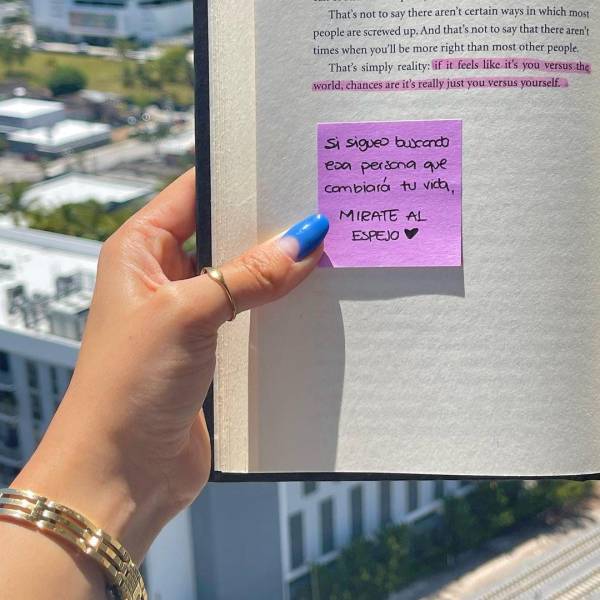 That's not to say there aren't certain ways in which most
people are screwed up. And that's not to say that there aren't
times when you'll be more right than most other people.
That's simply reality: if it feels like it's you versus the
world, chances are it's really just you versus yourself.
Si sigues buscando
esa persona que
cambiará tu vida,
MIRATE AL
ESPEJO ♥